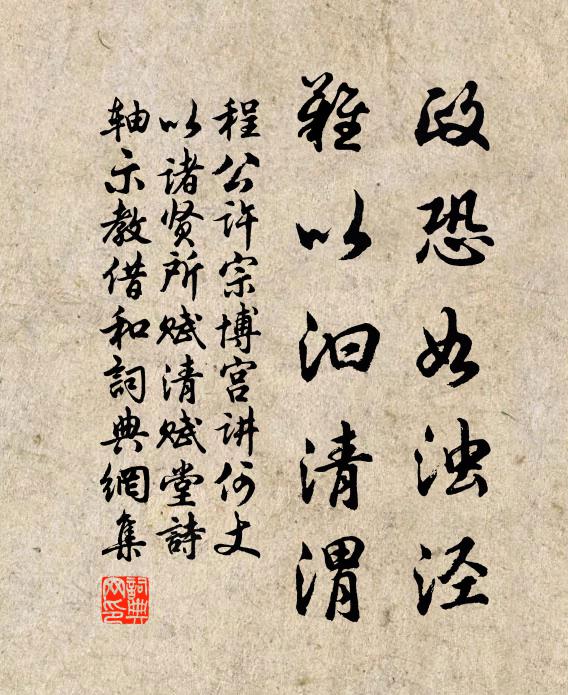 政恐如浊泾
难以汩清渭
程公许宗博宫讲何丈
以诸贤所赋清赋堂詩
轴示教借和詞典網集
詞典網印